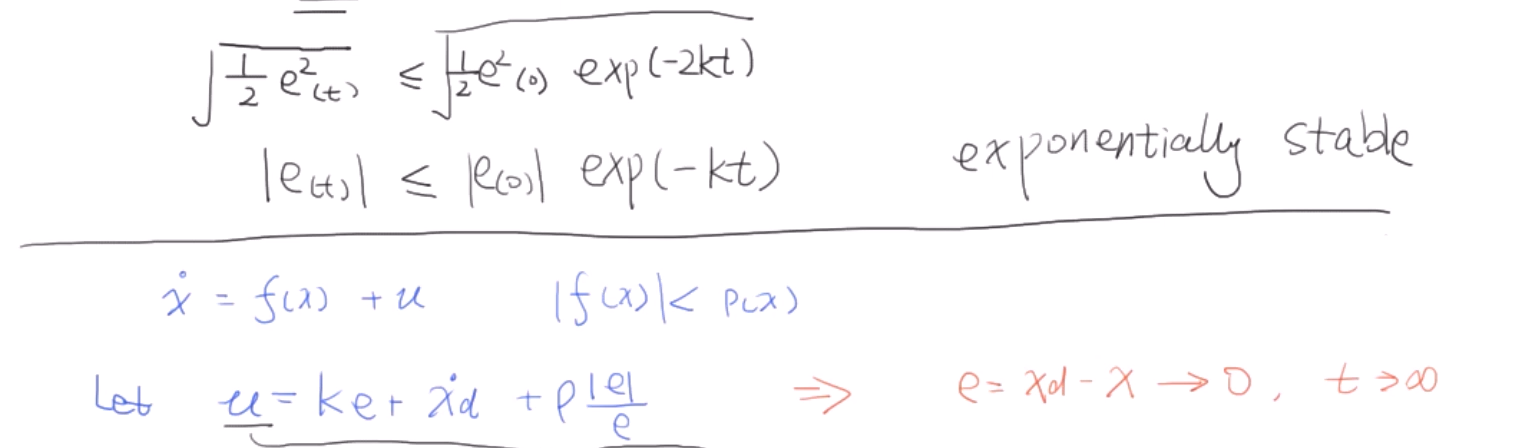 √(1/2 e²(t)) ≤ √(1/2 e²(0) exp(-2kt))
|e(t)| ≤ |e(0)| exp(-kt) exponentially stable
ẋ = f(x) + u |f(x)| < ρ(x)
Let u = ke + ẋd + ρ |e|/e ⇒ e = xd - x → 0, t → ∞